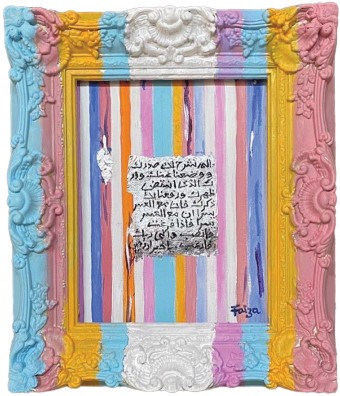 الم نشرح لك صدرك
ووضعنا عنك وزر
ك الذي انقض
ظهرك ورفعنا لك
ذكرك فان مع العسر
يسرا ان مع العسر
يسرا فاذا فرغت
فانصب والى ربك
فارغب
Faiza